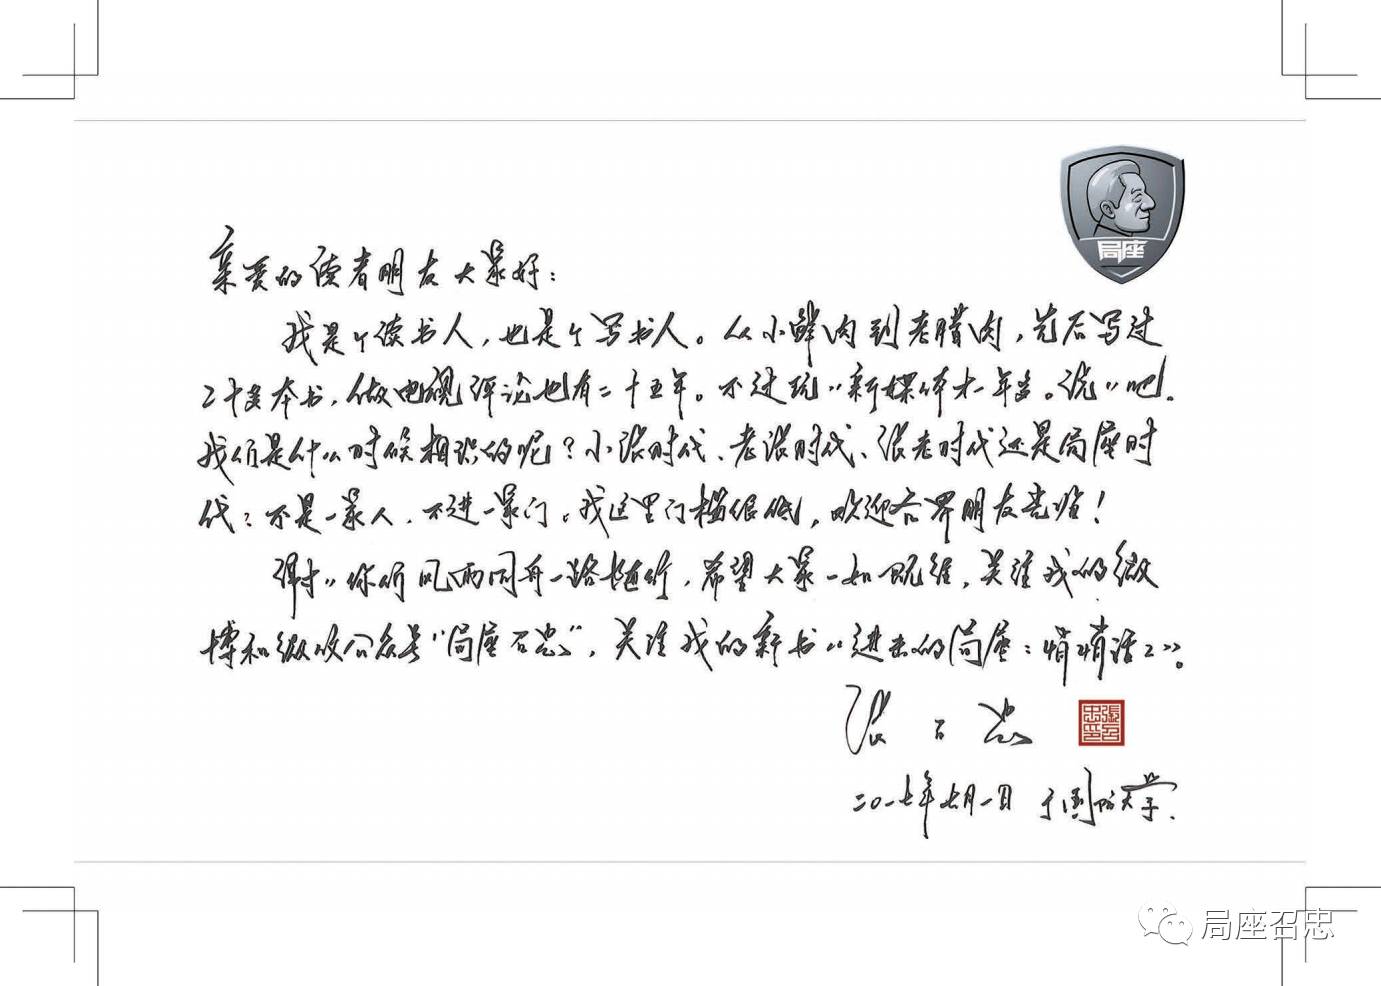 局座
亲爱的读者朋友大家好：
我是个读书人，也是个写书人。从小鲜肉到老腊肉，先后写过
二十多本书，做电视评论也有二十五年。不过玩新媒体才一年多。说说吧，
我们是什么时候相识的呢？小张时代、老张时代、张老时代还是局座时
代？不是一家人，不进一家门。我这里门槛很低，欢迎各界朋友光临！
谢谢你们风雨同舟一路随行，希望大家一如既往，关注我的微
博和微信公众号“局座召忠”，关注我的新书《进击的局座：悄悄话2》。
张召忠
張召忠印
二〇一七年七月一日 于国防大学
局座召忠